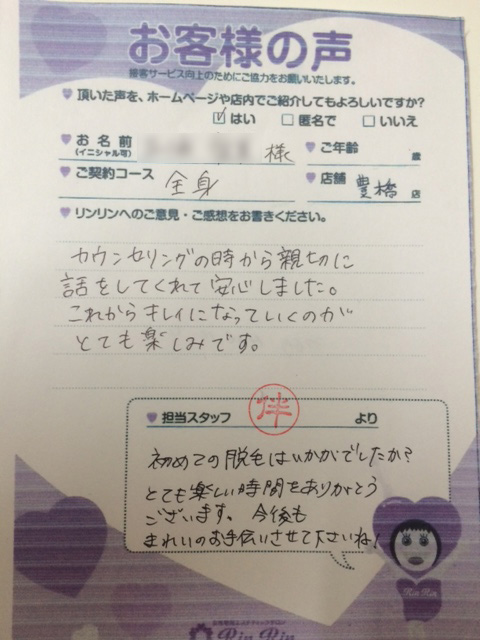 お客様の声
接客サービス向上のためにご協力をお願いいたします。
頂いた声を、ホームページや店内でご紹介してもよろしいですか?
はい 匿名で いいえ
お名前 様 ご年齢 歳
(イニシャル可)
ご契約コース 全身 店舗 豊橋 店
リンリンへのご意見・ご感想をお書きください。
カウンセリングの時から親切に
話をしてくれて安心しました。
これからキレイになっていくのが
とても楽しみです。
担当スタッフ 伴 より
初めての脱毛はいかがでしたか?
とても楽しい時間をありがとう
ございます。今後も
きれいのお手伝いさせて下さいね!
Rin Rin
Rin Rin